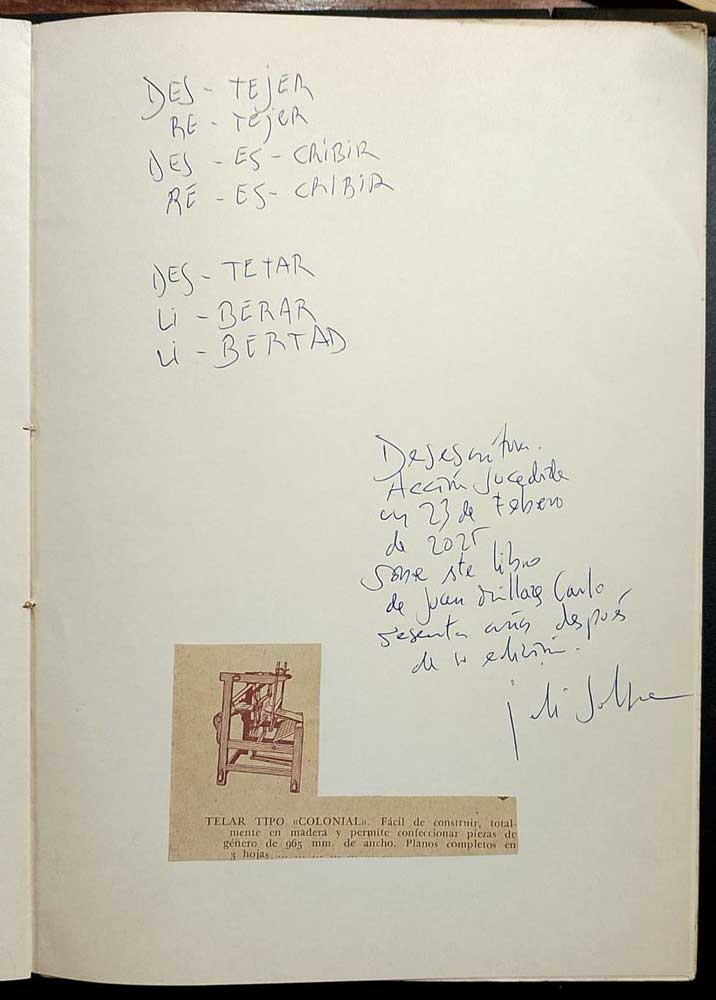 DES - TEJER
RE - TEJER
DES - ES - CRIBIR
RE - ES - CRIBIR
DES - TETAR
LI - BERAR
LI - BERTAD
Desescritura.
Acción sucedida
un 23 de Febrero
de 2025
sobre este libro
de Juan Carlo
sesenta años después
de su edición.
TELAR TIPO «COLONIAL». Fácil de construir, total-
mente en madera y permite confeccionar piezas de
género de 965 mm. de ancho. Planos completos en
3 hojas ... ... ... ... ... ... ... ... ...